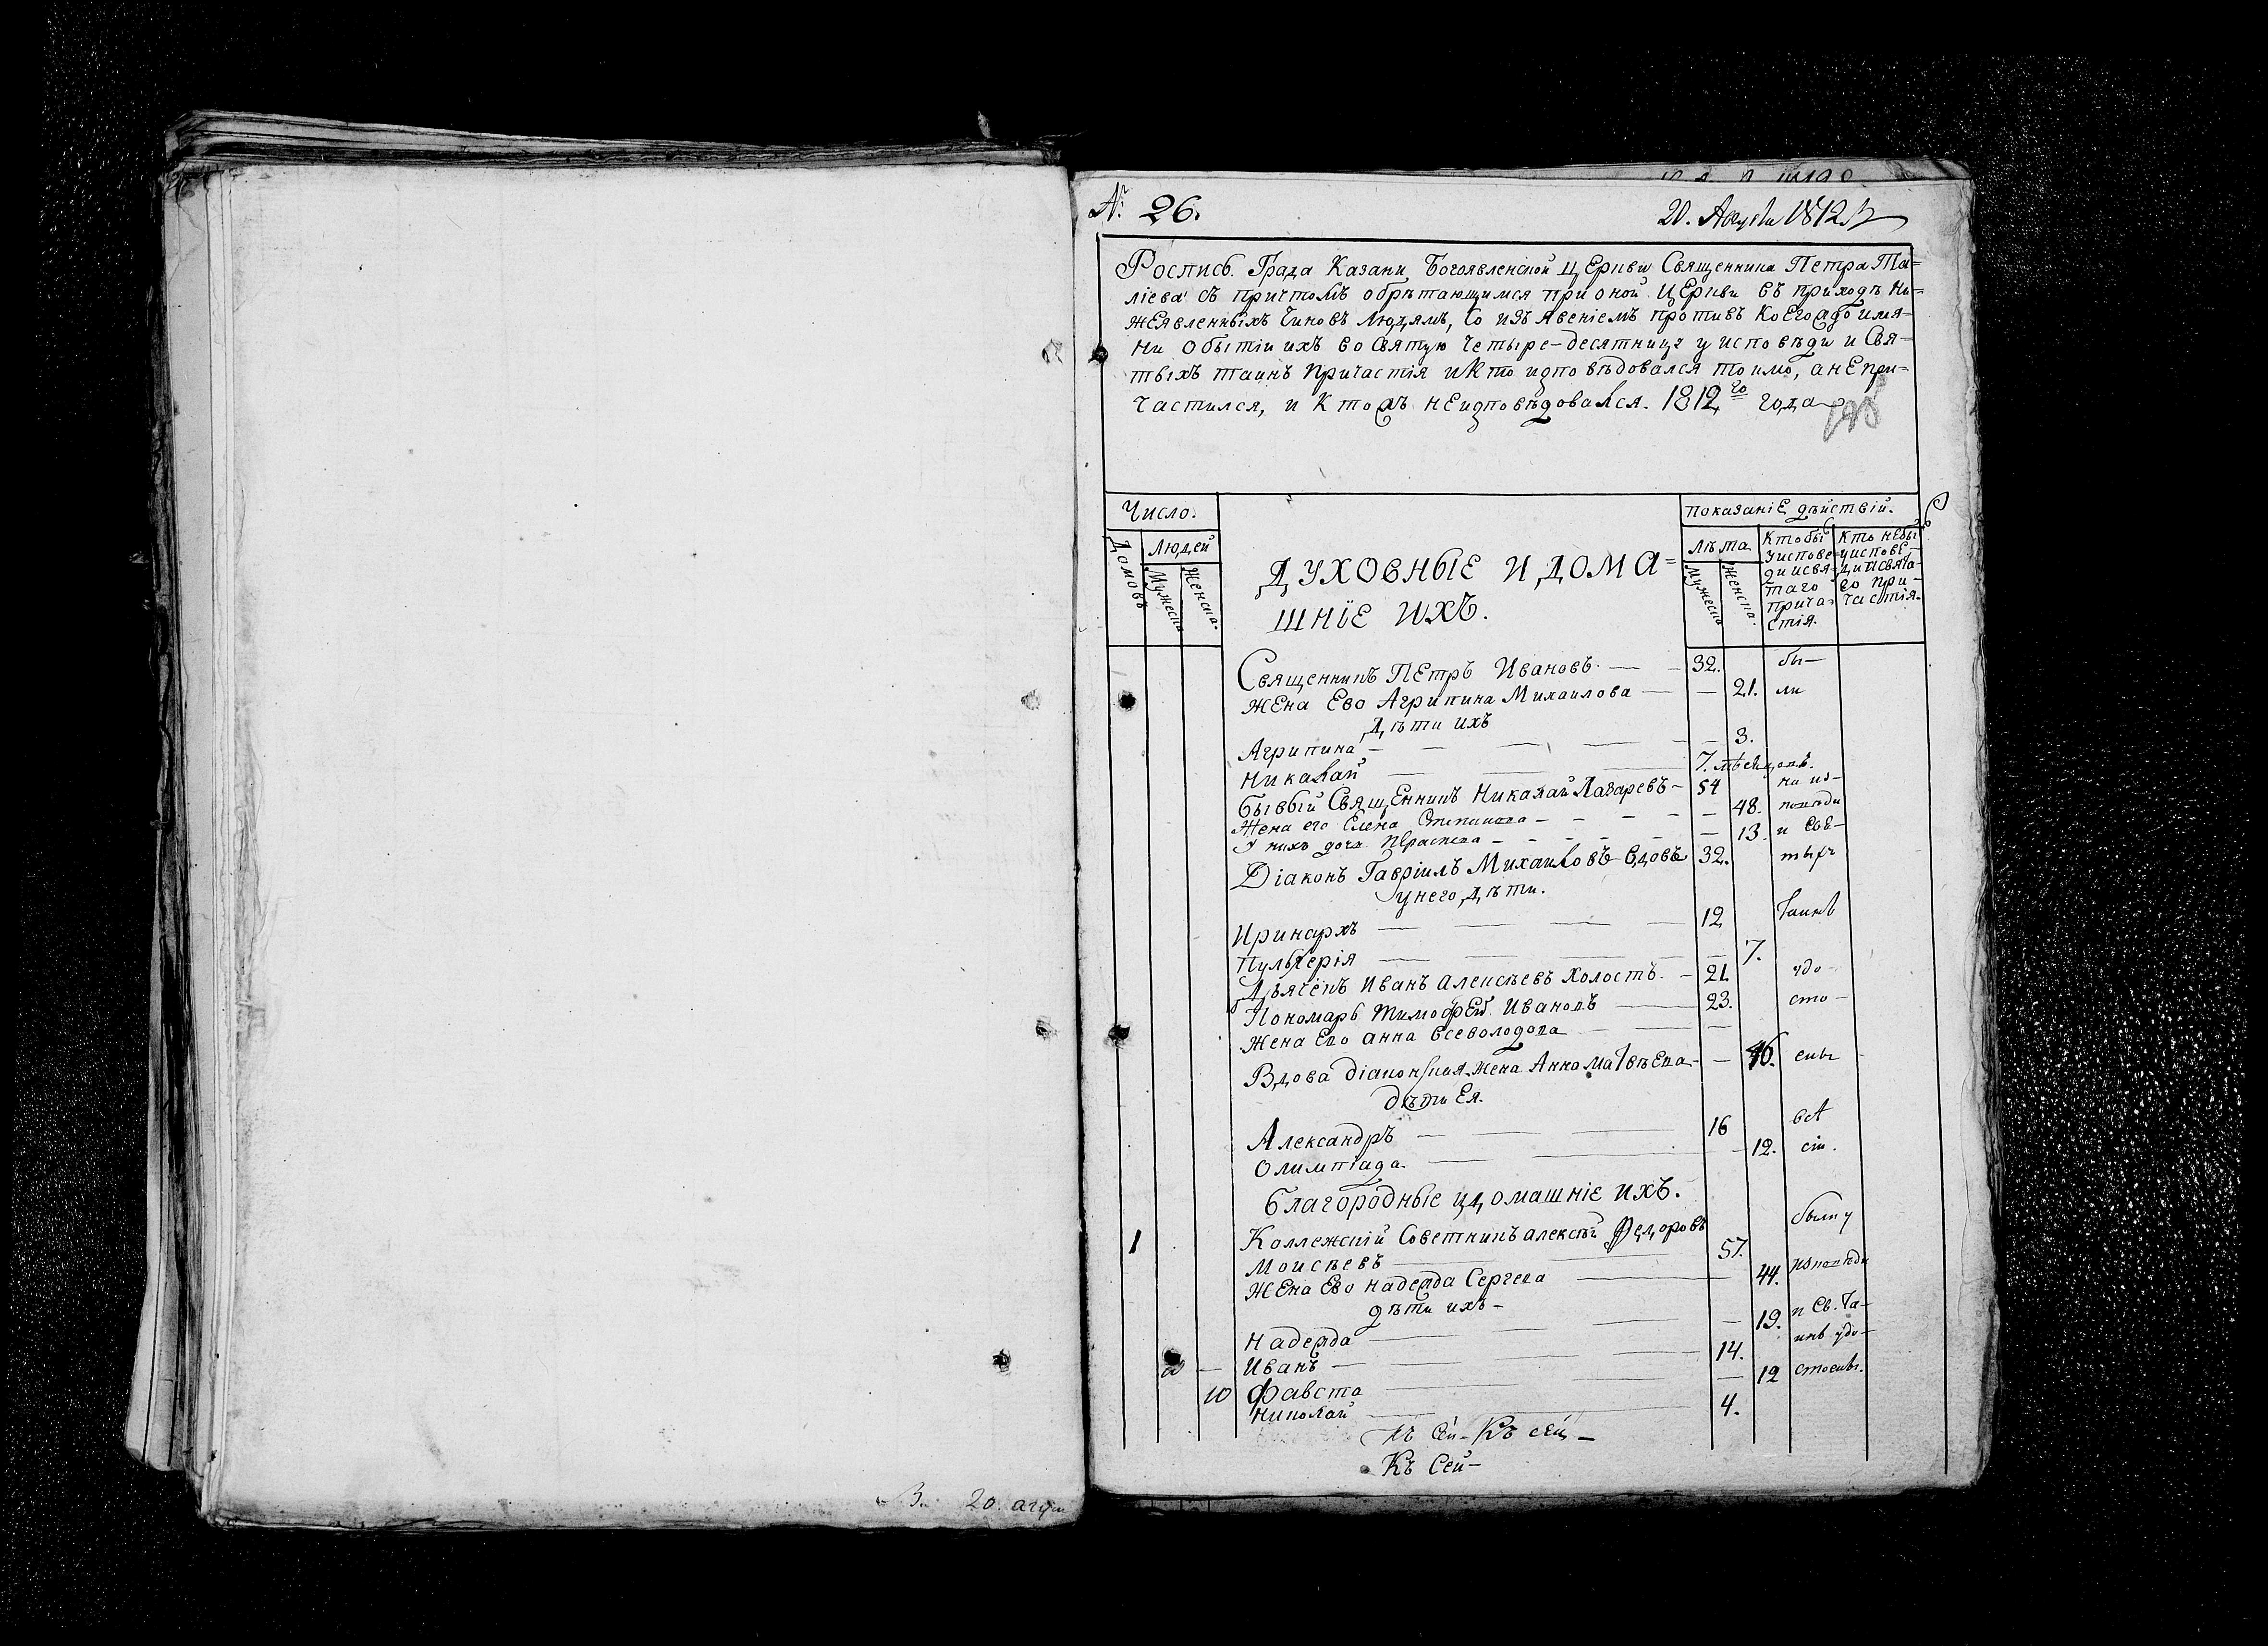 № 26.
20. Августа 1812
Роспись Града Казани Богоявленской Церкви Священника Петра Та=
лiева съ причтомъ обрѣтающимся при оной Церкви въ приходѣ ни=
жеявленныхъ чиновъ людямъ, со изъявенiемъ противъ коегождо имя=
ни о бытiи ихъ во святую четыре-десятницу у исповѣди и Свя=
тыхъ таинъ причастiя и кто исповѣдовался токмо, а не при=
частился, и кто жъ не исповѣдовался. 1812го года
Число. показанiе дѣйствiй.
Домовъ Людей
Мужеска Женска.
Духовные и дома=
шнiе ихъ.
лѣта
Мужеска Женска.
Кто бы
у испове-
ди и свя-
таго
прича-
стiя.
Кто небы
у испове-
ди и свята-
го при-
частiя.
Священникъ Петръ Ивановъ 32. бы-
Жена Ево Агрипина Михаилова 21. ли
Дѣти ихъ
Агрипина 3.
Николай 7. мѣсяцовъ.
бывый Священникъ Николай Лазаревъ 54 на ис-
Жена его Елена Степанова 48. повѣди
У нихъ дочь Праскева 13. и Свя-
Дiаконъ Гаврiилъ Михаиловъ вдовъ 32. тыхъ
у него дѣти.
Иринархъ 12 таинъ
Пульхерiя 7.
Дьячекъ Иванъ Алексѣевъ холостъ. 21. удо-
Пономарь Тимофей Ивановъ 23. сто-
Жена Ево Анна Всеволодова
Вдова дiаконская жена Анна Матвѣева 46. ены
дѣти Ея.
Александръ 16 всѣ
Олимпiада. 12.
благородные и домашнiе ихъ.
1 Коллежскiй Советникъ Алексѣй Федоровъ были у
Моисѣевъ 57.
Жена Ево Надежда Сергева 44. исповѣди
дѣти ихъ
Надежда 19. и Св. Та-
Иванъ 14. инъ удо-
10 Фавста 12 стоены.
Николай 4.
Къ Сей- Къ сей-
Къ Сей-
20. авгус